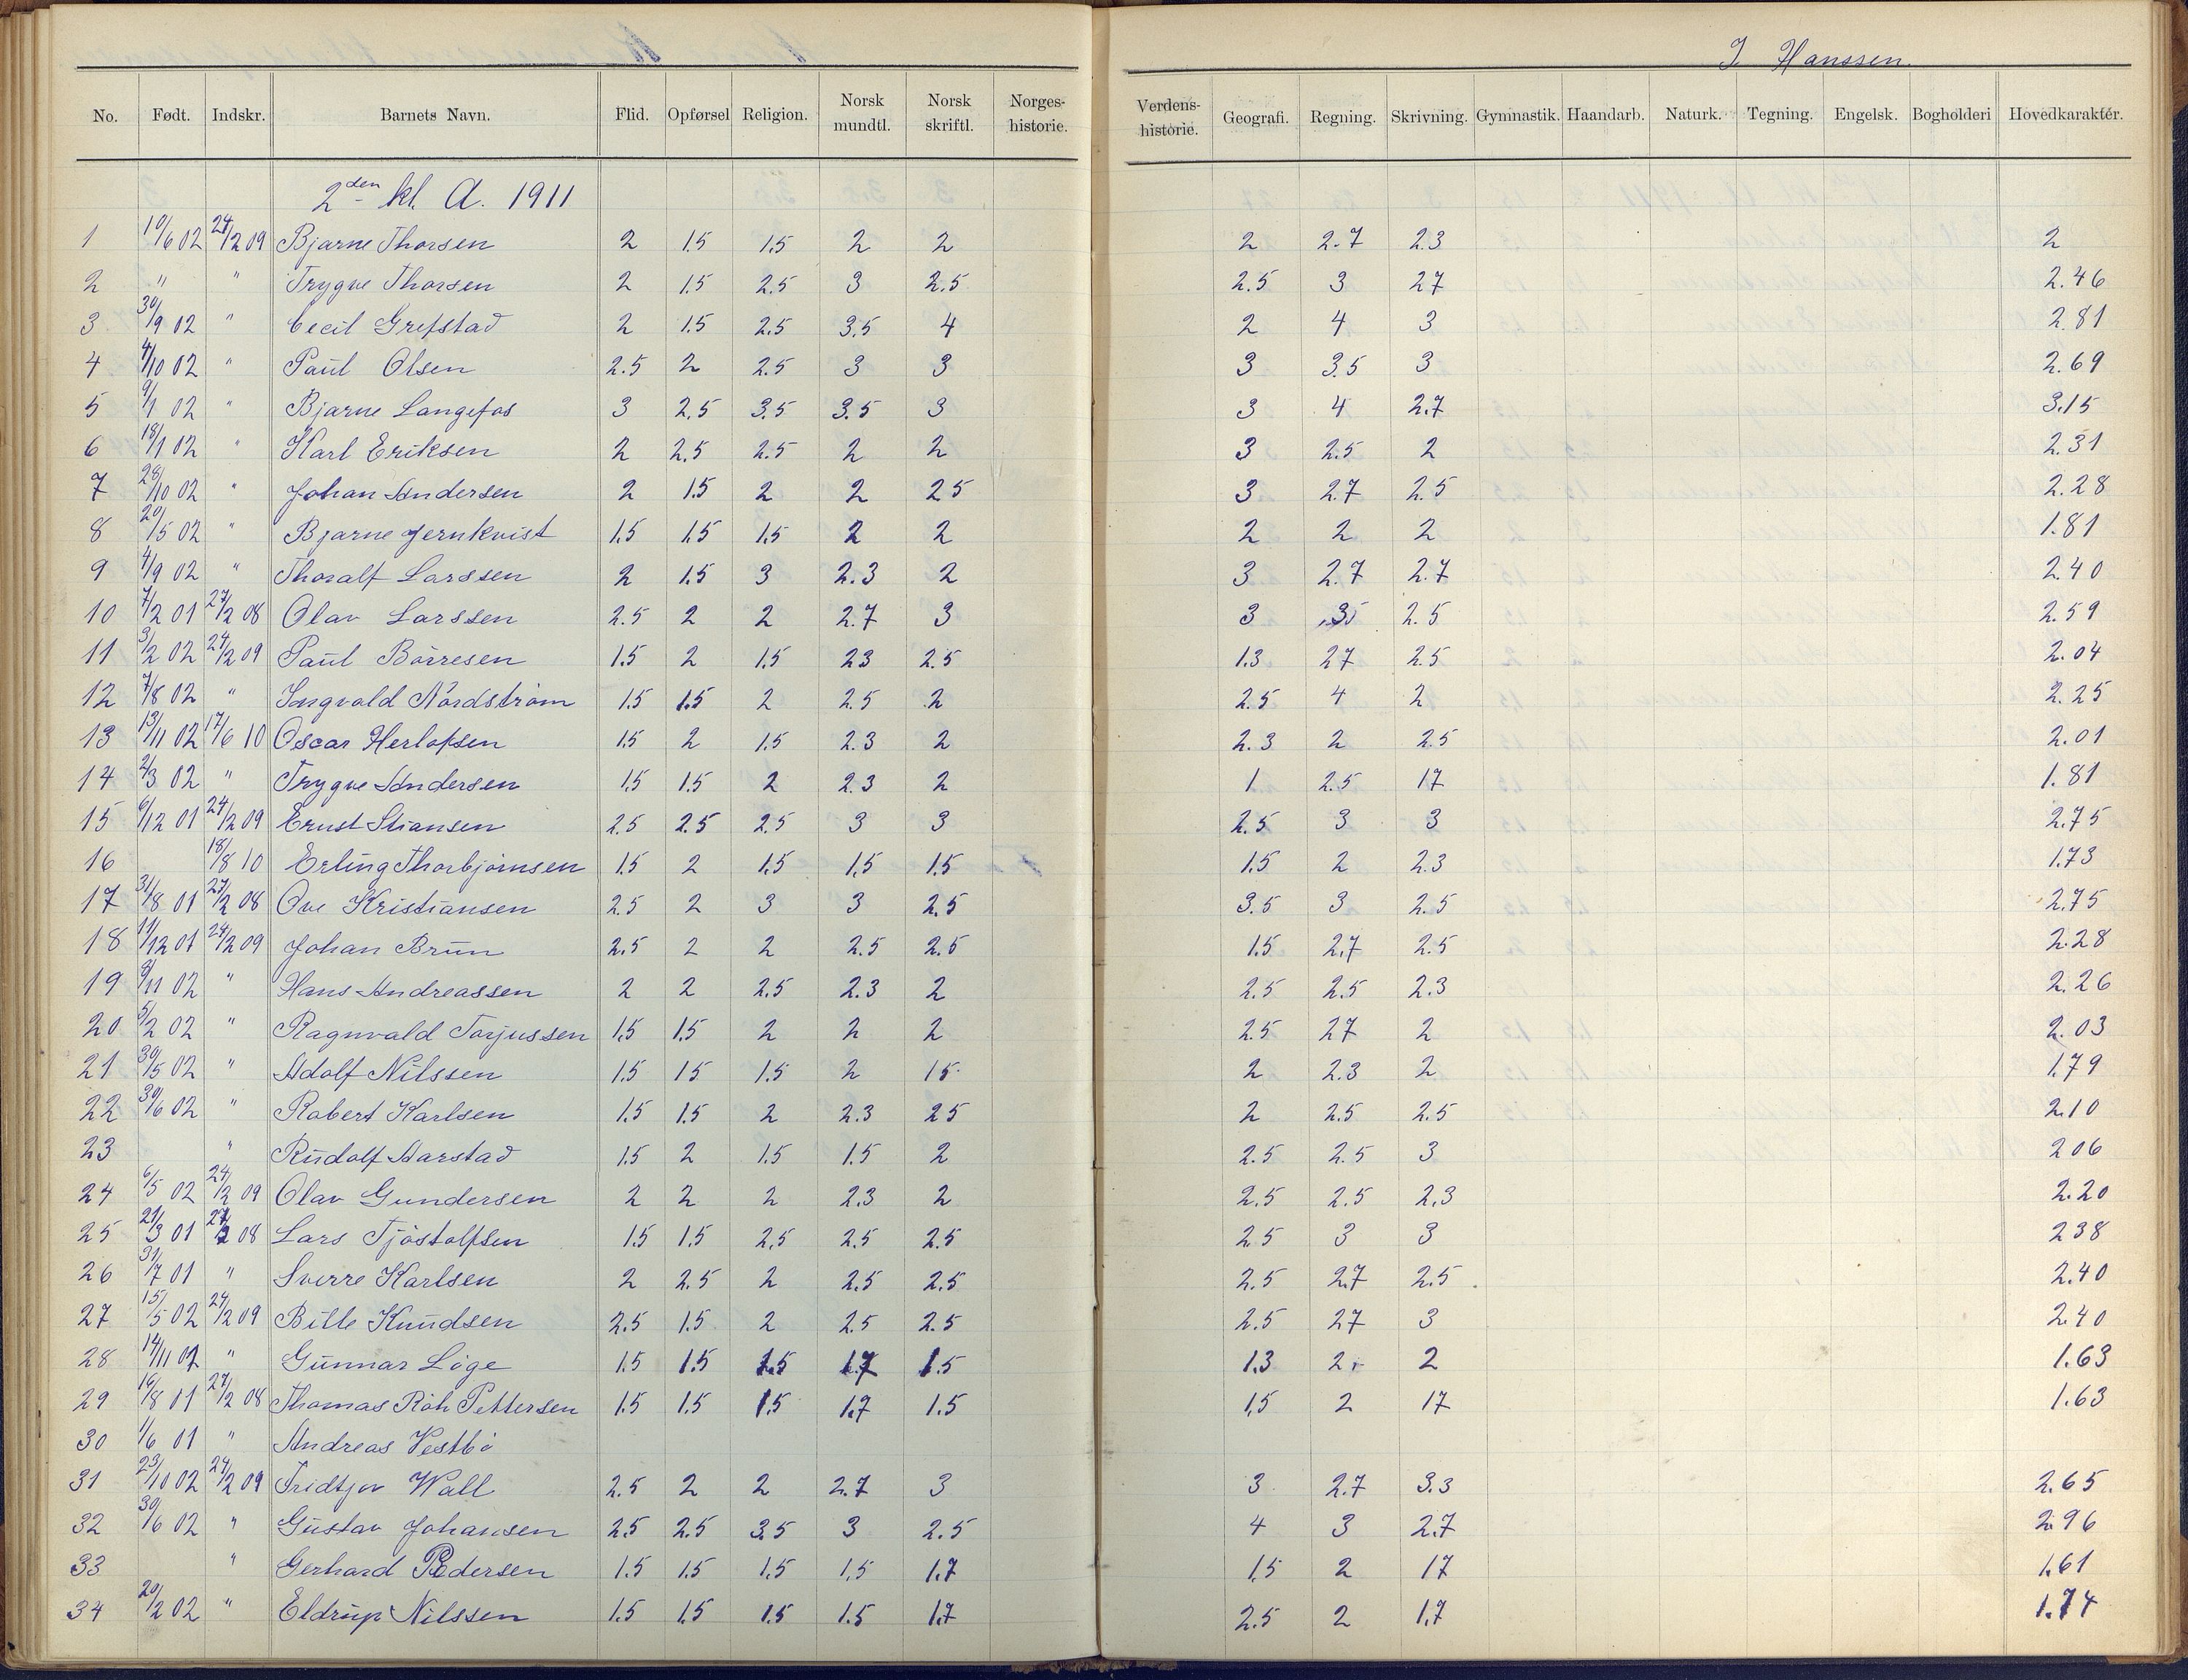 J. Hanssen.
No. Født. Indskr. Barnets Navn. Flid. Opførsel Religion. Norsk mundtl. Norsk skriftl. Norges-historie. Verdens-historie. Geografi. Regning. Skrivning. Gymnastik. Haandarb. Naturk. Tegning. Engelsk. Bogholderi Hovedkaraktér.
2den kl. A. 1911
1 10/6 02 24/2 09 Bjarne Thorsen 2 1.5 1.5 2 2 2 2.7 2.3 2
2 " " Trygve Thorsen 2 1.5 2.5 3 2.5 2.5 3 27 2.46
3 30/9 02 " Cecil Grefstad 2 1.5 2.5 3.5 4 2 4 3 2.81
4 4/10 02 " Paul Olsen 2.5 2 2.5 3 3 3 3.5 3 2.69
5 9/1 02 " Bjarne Langefos 3 2.5 3.5 3.5 3 3 4 2.7 3.15
6 18/1 02 " Karl Eriksen 2 2.5 2.5 2 2 3 2.5 2 2.31
7 28/10 02 " Johan Andersen 2 1.5 2 2 25 3 2.7 2.5 2.28
8 20/5 02 " Bjarne Jernkvist 1.5 1.5 1.5 2 2 2 2 2 1.81
9 4/9 02 " Thoralf Larssen 2 1.5 3 2.3 2 3 2.7 2.7 2.40
10 7/2 01 27/2 08 Olav Larssen 2.5 2 2 2.7 3 3 3 2.5 2.59
11 3/2 02 24/2 09 Paul Börresen 1.5 2 1.5 23 2.5 1.3 27 2.5 2.04
12 7/8 02 " Ingvald Nordström 1.5 1.5 2 2.5 2 2.5 4 2 2.25
13 13/11 02 17/6 10 Oscar Herlofsen 1.5 2 1.5 2.3 2 2.3 2 2.5 2.01
14 2/3 02 " Trygve Andersen 1.5 1.5 2 2.3 2 1 2.5 17 1.81
15 6/12 01 24/2 09 Ernst Stiansen 2.5 2.5 2.5 3 3 2.5 3 3 2.75
16 18/8 10 Erling Thorbjörnsen 1.5 2 1.5 1.5 1.5 1.5 2 2.3 1.73
17 31/8 01 27/2 08 Ove Kristiansen 2.5 2 3 3 2.5 3.5 3 2.5 2.75
18 11/12 01 24/2 09 Johan Brun 2.5 2 2 2.5 2.5 1.5 2.7 2.5 2.28
19 8/11 02 " Hans Andreassen 2 2 2.5 2.3 2 2.5 2.5 2.3 2.26
20 5/2 02 " Ragnvald Torjussen 1.5 1.5 2 2 2 2.5 27 2 2.03
21 30/5 02 " Adolf Nilssen 1.5 15 1.5 2 15 2 2.3 2 1.79
22 30/6 02 " Robert Karlsen 1.5 1.5 2 2.3 25 2 2.5 2.5 2.10
23 " Rudolf Aarstad 1.5 2 1.5 1.5 2 2.5 2.5 3 206
24 6/5 02 24/2 09 Olav Gundersen 2 2 2 2.3 2 2.5 2.5 2.3 2.20
25 21/3 01 27/2 08 Lars Tjöstolfsen 1.5 1.5 2.5 2.5 2.5 2.5 3 3 238
26 31/7 01 " Sverre Karlsen 2 2.5 2 2.5 2.5 2.5 2.7 2.5 2.40
27 15/5 02 24/2 09 Bille Knudsen 2.5 1.5 2 2.5 2.5 2.5 27 3 2.40
28 14/11 01 " Gunnar Löge 1.5 1.5 1.5 1.7 1.5 1.3 2 2 1.63
29 16/8 01 27/2 08 Thomas Röh Pettersen 1.5 1.5 1.5 1.7 1.5 1.5 2 17 1.63
30 1/6 01 " Andreas Vestbö
31 23/10 02 24/2 09 Fridtjov Wall 2.5 2 2 2.7 3 3 2.7 3.3 2.65
32 30/6 02 " Gustav Johansen 2.5 2.5 3.5 3 2.5 4 3 2.7 2.96
33 " Gerhard Pedersen 1.5 1.5 1.5 1.5 1.7 1.5 2 17 1.61
34 20/2 02 " Eldrup Nilssen 1.5 1.5 1.5 1.5 1.7 2.5 2 1.7 1.74